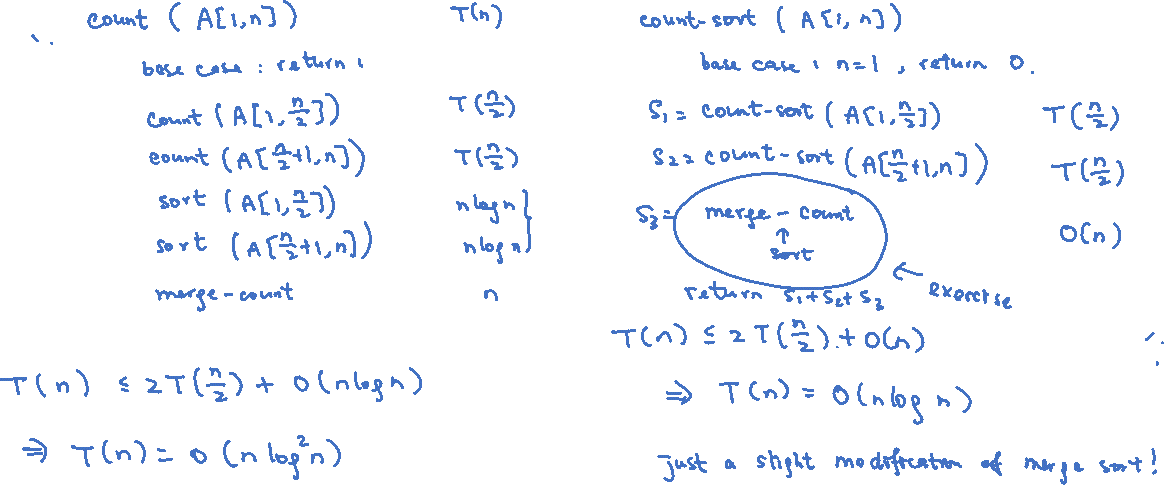 count ( A[1,n] ) T(n)
base case : return 1
count ( A[1, n/2] ) T(n/2)
count ( A[n/2+1, n] ) T(n/2)
sort ( A[1, n/2] ) n log n
sort ( A[n/2+1, n] ) n log n
merge-count n
T(n) ≤ 2T(n/2) + O(n log n)
⇒ T(n) = O(n log²n)
count-sort ( A[1, n] )
base case : n=1 , return 0.
S₁ = count-sort ( A[1, n/2] ) T(n/2)
S₂ = count-sort ( A[n/2+1, n] ) T(n/2)
S₃ = merge - count O(n)
↑
sort
return S₁+S₂+S₃ ← exercise
T(n) ≤ 2T(n/2) + O(n)
⇒ T(n) = O(n log n)
just a slight modification of merge sort!